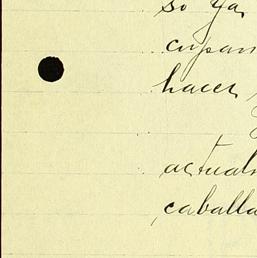 so ya
cupan
hacer
actuals
caballa